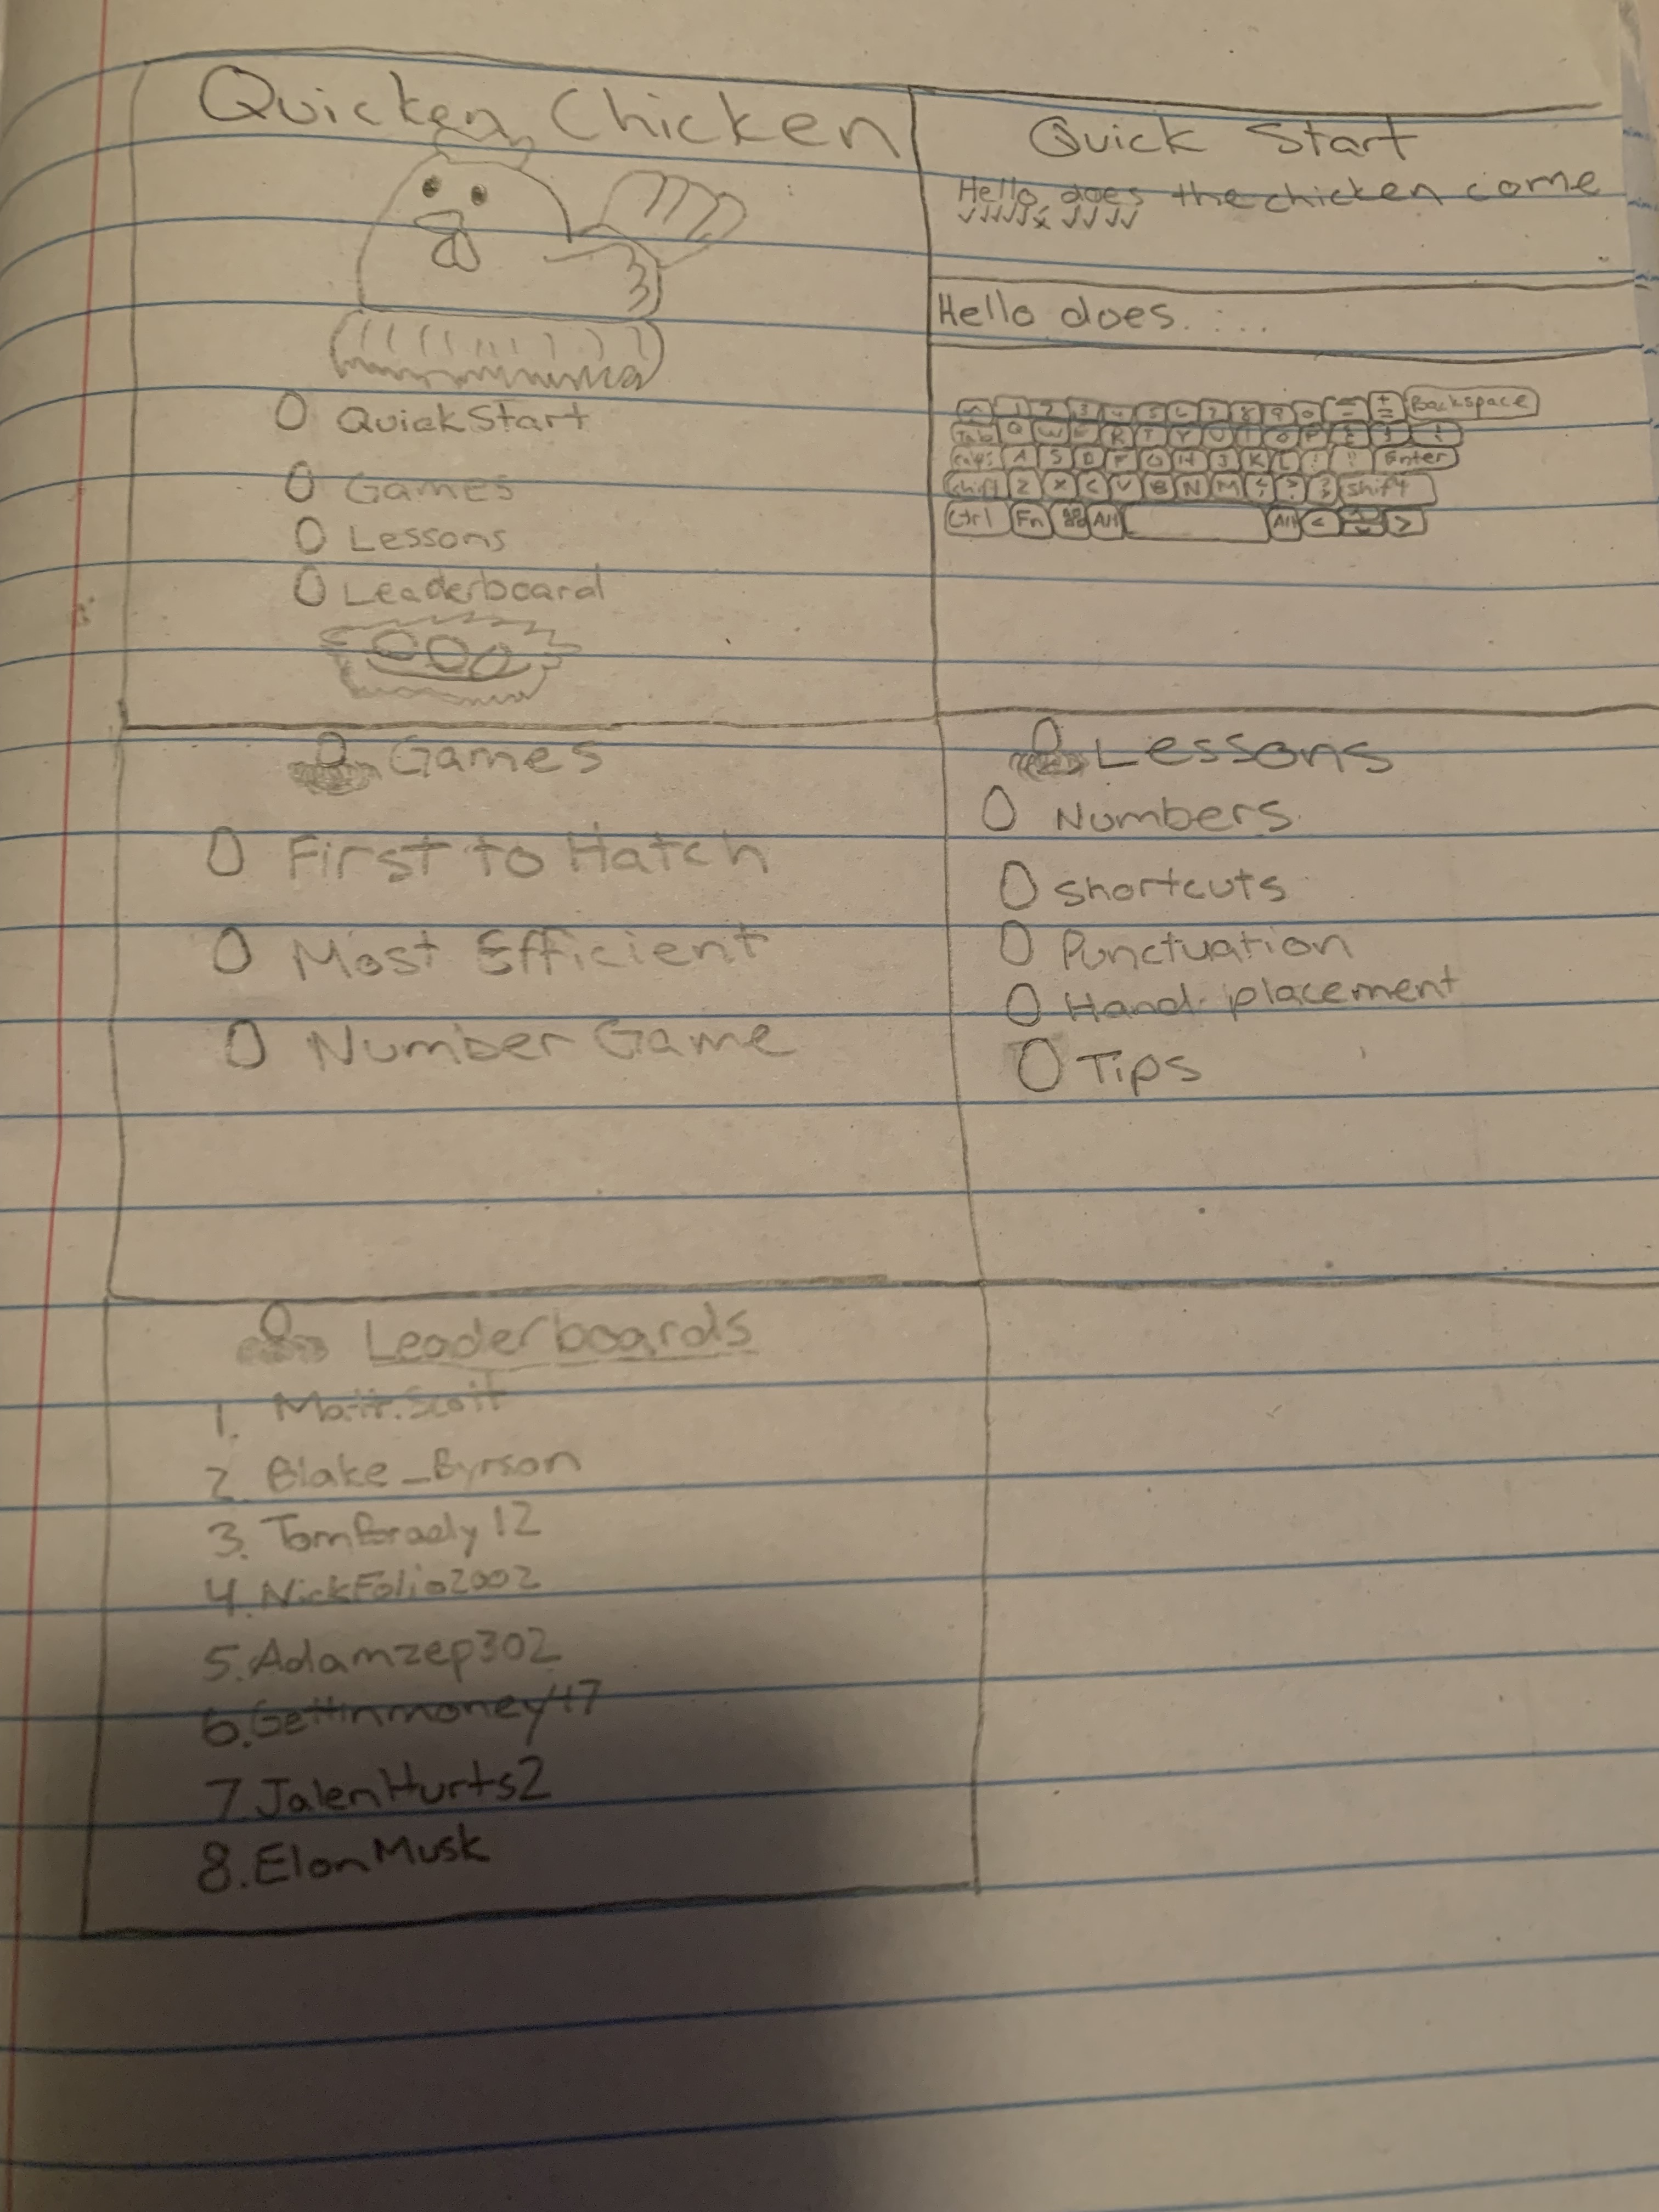 Quicken Chicken
QuickStart
Games
Lessons
Leaderboard
Quick Start
Hello, does the chicken come
✓✓✓✓✓x ✓✓✓✓
Hello does....
1 2 3 4 5 6 7 8 9 0 - + = Backspace
Tab Q W E R T Y U I O P
Caps A S D F G H J K L Enter
Shift Z X C V B N M < > ? Shift
Ctrl Fn Alt Alt < >
Games
First to Hatch
Most Efficient
Number Game
Lessons
Numbers
Shortcuts
Punctuation
Hand placement
Tips
Leaderboards
1. Matt.Scott
2. Blake_Byrson
3. TomBrady12
4. NickFolio2002
5. Adamzep302
6. Gettinmoney47
7. JalenHurts2
8. ElonMusk